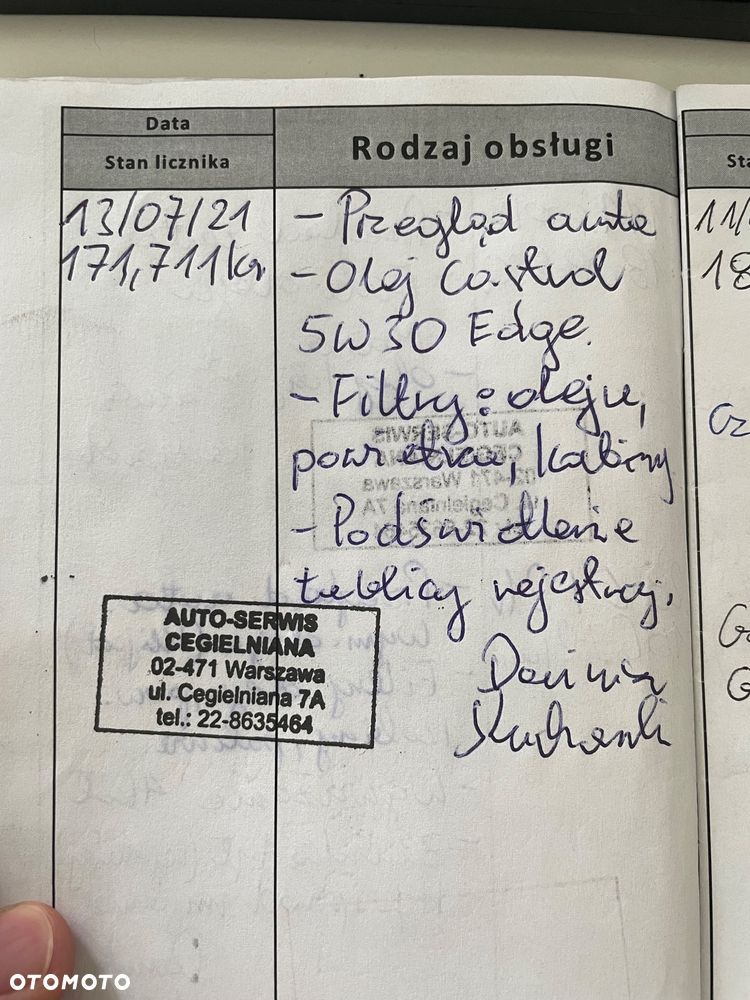 Data
Stan licznika
Rodzaj obsługi
13/07/21
171,711km
- Przegląd auta
- Olej Castrol
5W30 Edge.
- Filtry: oleju,
powietrza, kabiny
- Podświetlenie
tablicy rejestracj.
AUTO-SERWIS
CEGIELNIANA
02-471 Warszawa
ul. Cegielniana 7A
tel.: 22-8635464
Sta
11/
18
OTOMOTO